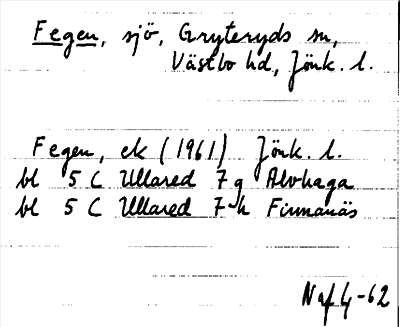 Fegen, sjö, Gryteryds sn,
Västbo hd, Jönk. l.
Fegen, ek (1961) Jönk. l.
bl 5 C Ullared 7 g Alvhaga
bl 5 C Ullared 7 h Finnanäs
4-62